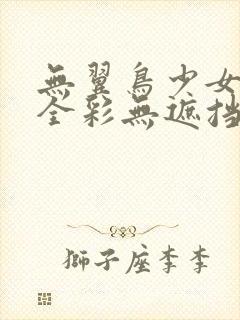 無翼鳥少女
全彩無遮挡
獅子座李李